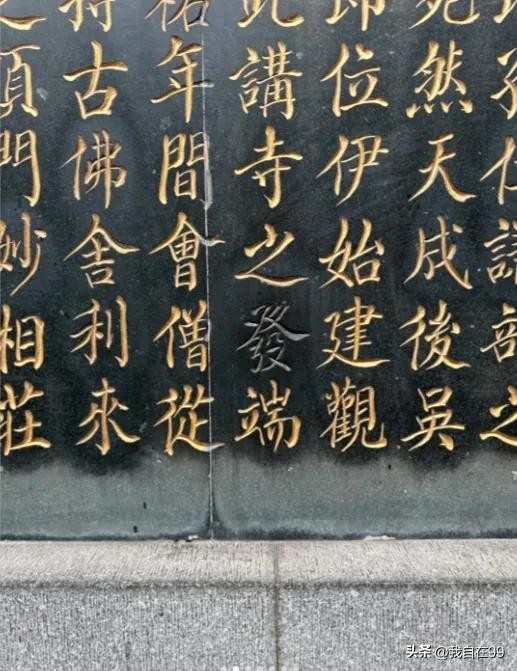 講部之
宛然天成後吳
即位伊始建觀
此講寺之發端
祐年間會僧從
持古佛舍利來
之頂門妙相莊
头条 @我自在99